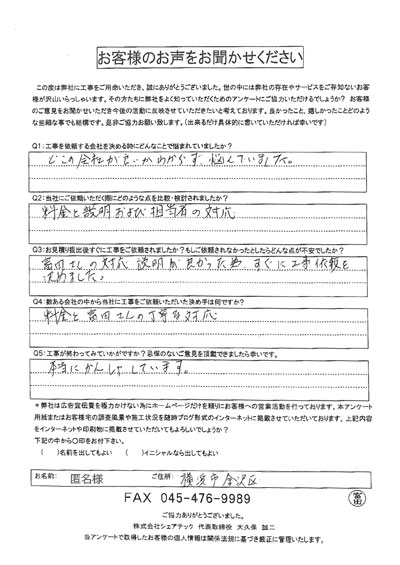 お客様のお声をお聞かせください
この度は弊社に工事をご用命いただき、誠にありがとうございました。世の中には弊社の存在やサービスをご存知ないお客
様が沢山いらっしゃいます。その方たちに弊社をよく知っていただくためのアンケートにご協力いただけるでしょうか？ お客様
のご意見をお聞かせいただき今後の活動に反映させていただきたいと考えております。良かったこと、嬉しかったことどのよう
な些細な事でも結構です。是非ご協力お願い致します。（出来るだけ具体的に書いていただければ幸いです）
Q1：工事を依頼する会社を決める時にどんなことで悩まれていましたか？
どこの会社が良いかわからず悩んでいました。
Q2：当社にご依頼いただく際にどのような点を比較・検討されましたか？
料金と説明および担当者の対応
Q3：お見積り提出後すぐに工事をご依頼されましたか？もしご依頼されなかったとしたらどんな点が不安でしたか？
富田さんの対応 説明が良かった為、すぐに工事依頼を
決めました。
Q4：数ある会社の中から当社に工事をご依頼いただいた決め手は何ですか？
料金と富田さんの丁寧な対応
Q5：工事が終わってみていかがですか？忌憚のないご意見を頂戴できましたら幸いです。
本当にかんしゃしています。
＊弊社は広告宣伝費を極力かけない為にホームページだけを頼りにお客様への営業活動を行っております。本アンケート
用紙またはお客様宅の調査風景や施工状況を随時ブログ形式のインターネットに掲載させていただいております。上記内容
をインターネットや印刷物に掲載させていただいてもよろしいでしょうか？
下記の中から○印をお付下さい。
（　）名前を出してもよい （　）イニシャルなら出してもよい
お名前： 匿名様 ご住所： 横浜市金沢区
FAX 045-476-9989
富田
ご協力ありがとうございました。
株式会社シェアテック 代表取締役 大久保 誠二
当アンケートで取得したお客様の個人情報は関係法規に基づき厳正に管理いたします。